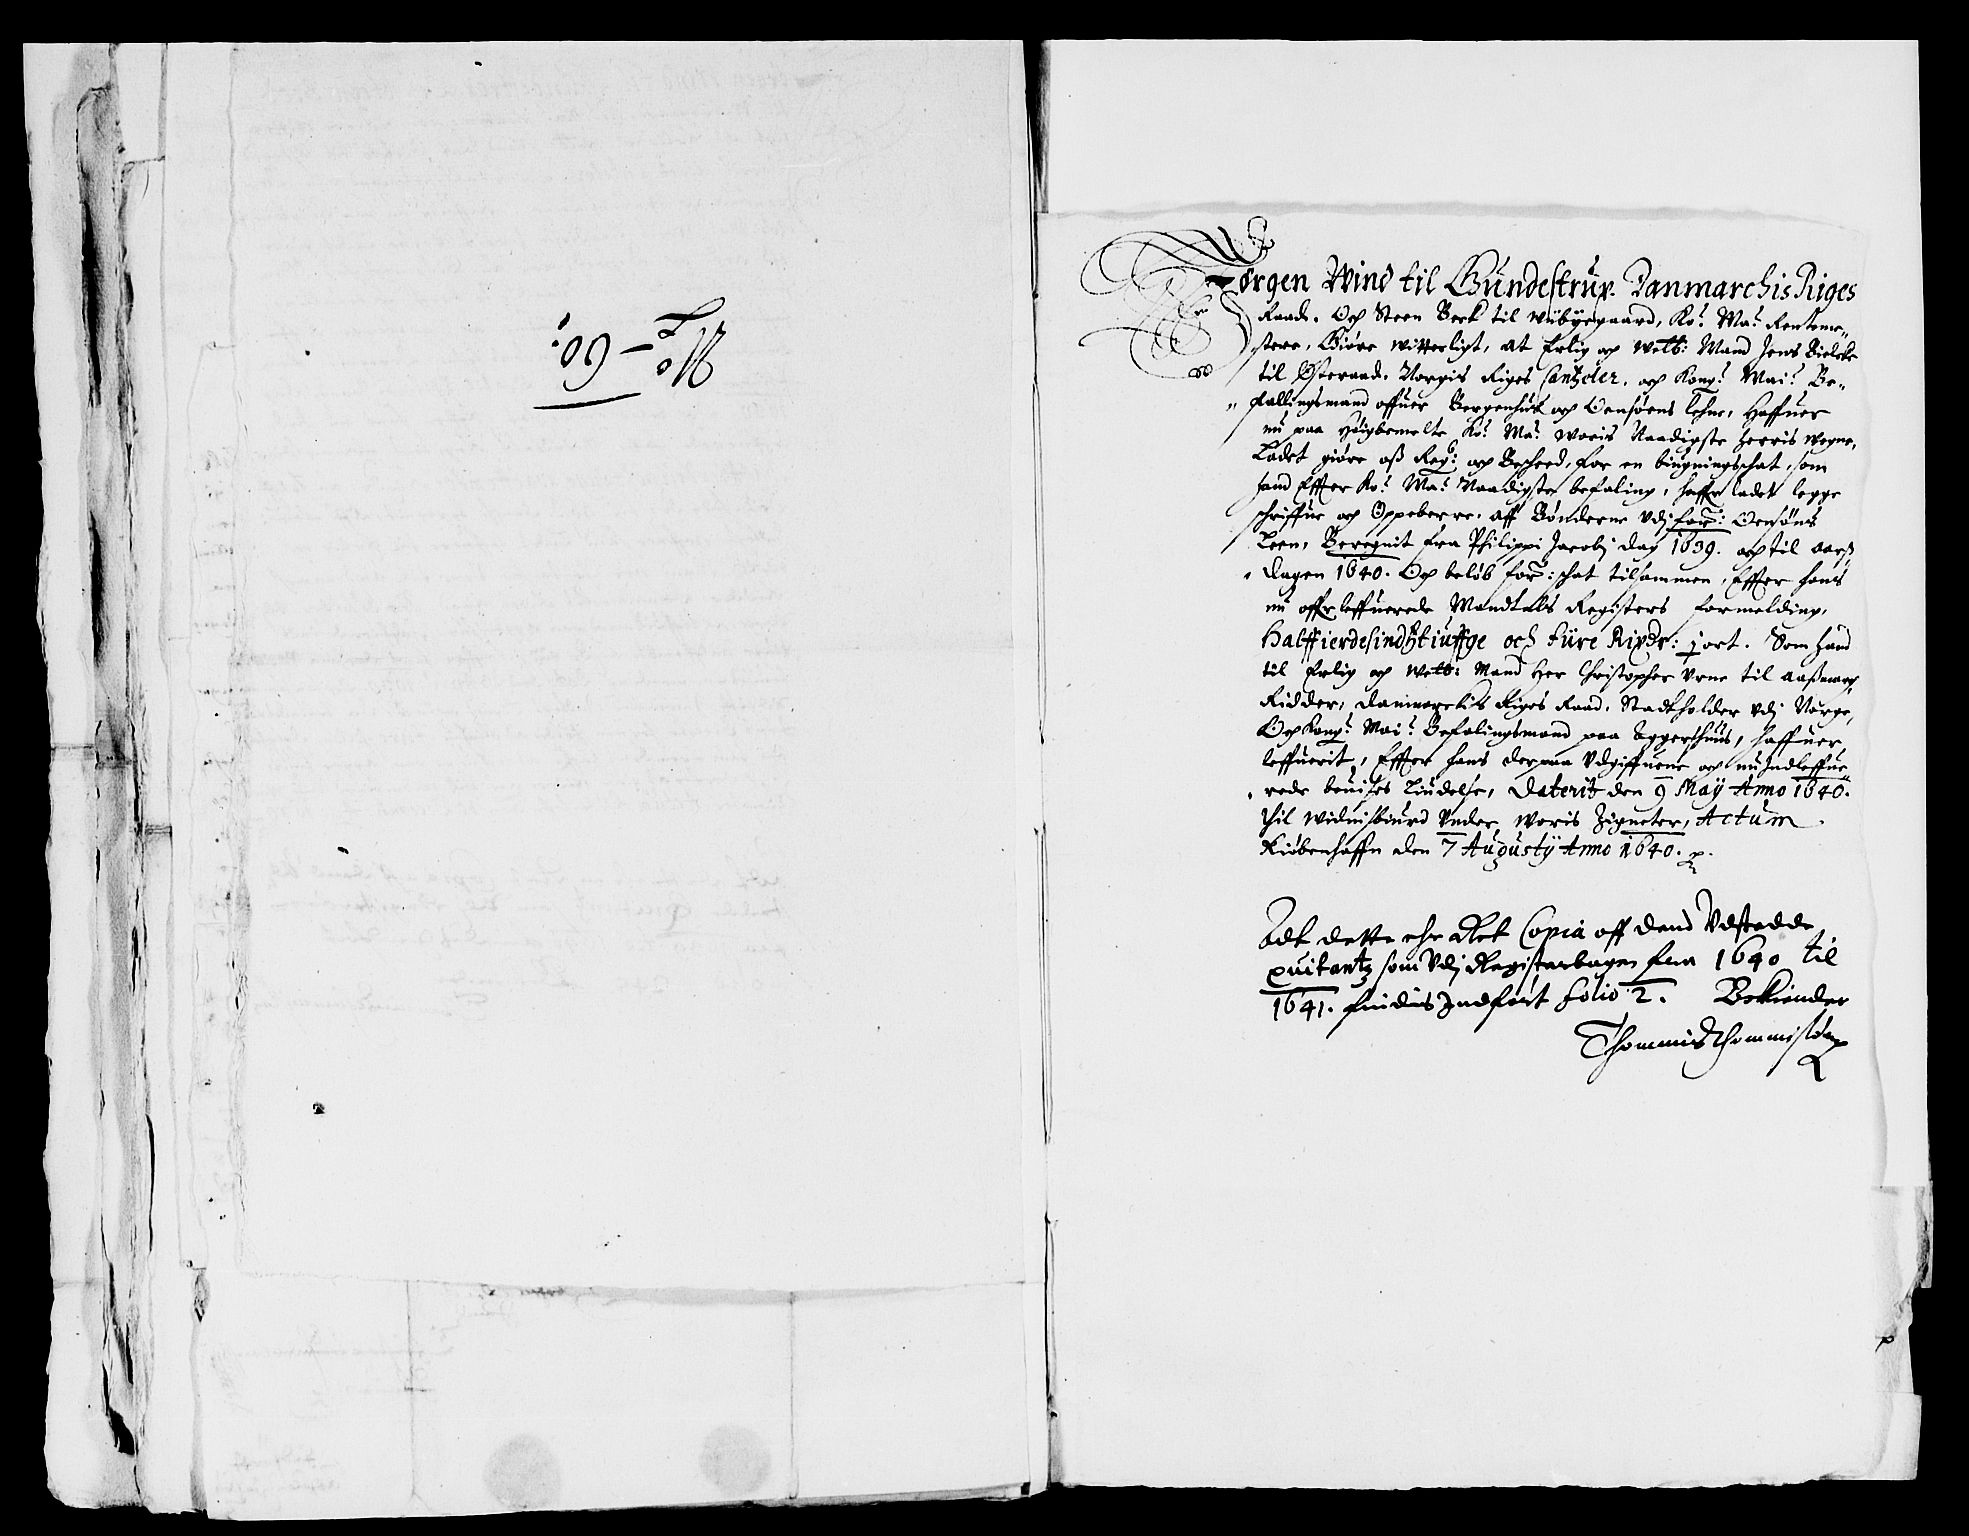 No – 60
Jørgen Wind til Gundestrup. Danmarchis Riges
Raad. Och Steen Beck til Wibygaard, Ko: Ma: Renteme„
stere, Giøre witterligt, at Erlig och Welb: Mand Jens Bielcke
til Østeraad. Norgis Riges Cantzeler. och Kong: Mai: Be„
„fallingsmand offuer Bergenhus och Lehne, Haffuer
nu paa Høigbemelte Ko: Ma: woris Naadigste Herris wegne,
Ladet giøre oß Reg: och Bescheed, for en biugningschat, som
hand Effter Ko: Ma: Naadigste befaling, haffr ladet legge
schriffue och Oppeberre. aff Bønderne vdj for:
Leen, Beregnit fra Philippi Jacobj dag 1639. och til aarß
dagen 1640. Och beløb for: schat tilsammen, Effter hans
nu offrleffuerede Mandtals Registers formelding,
Halffierdesindstiuffge och fiire Rixdr: j ort. Som hand
til Erlig och Welb: Mand Her Christopher Vrne til Aaßmarch,
Ridder, Danmarckis Riges Raad, Stadtholder vdj Norge,
Och Kong: Mai: Befalingsmand paa Aggershuus, haffuer
leffuerit, Effter hans derpaa vdgiffuene och nu Indleffue„
„rede beuises Liudelse, Daterit den 9 Maÿ Anno 1640.
Til widnisbiurd Vnder woris Zigneter, Actum
Kiøbenhaffn den 7 Augustÿ Anno 1640.
Adt dette ehr Ret Copia aff dend Vdstædde
quitantz som Vdj Registerbogen fra 1640 til
1641. findis Indført folio 2. Bekiender
Thommis Thommisøn